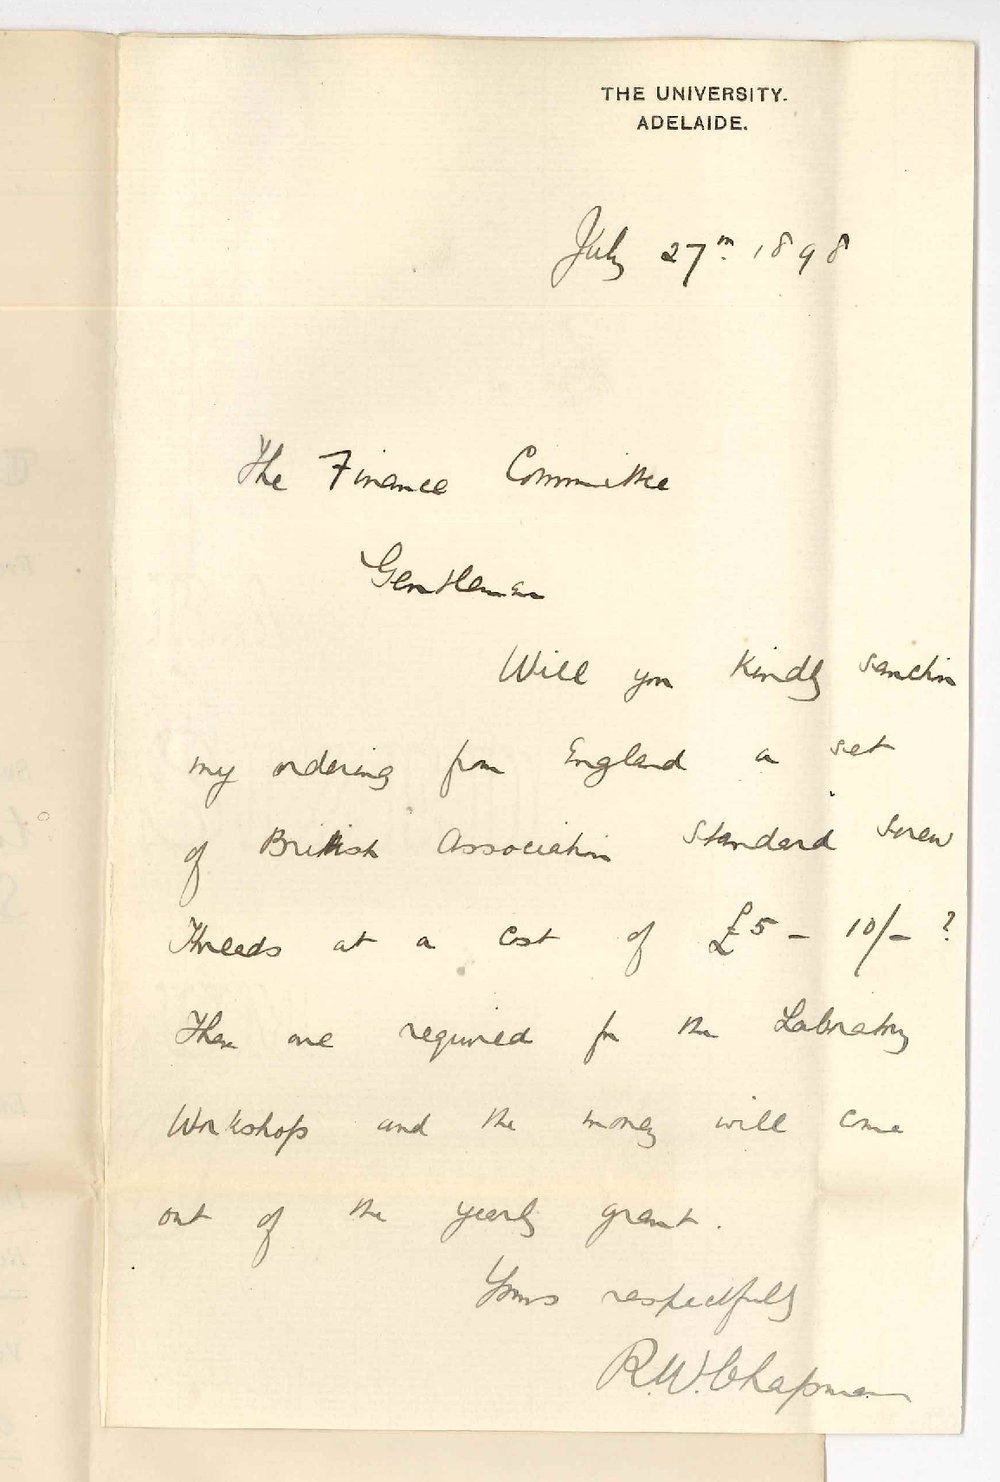 THE UNIVERSITY.
ADELAIDE.
July 27th 1898
The Finance Committee
Gentlemen
Will you kindly sanction
my ordering from England a set
of British Association Standard Screw
Threads at a cost of £5 – 10/– ?
These are required for the Laboratory
Workshops and the money will come
out of the yearly grant.
Yours respectfully
R.W. Chapman